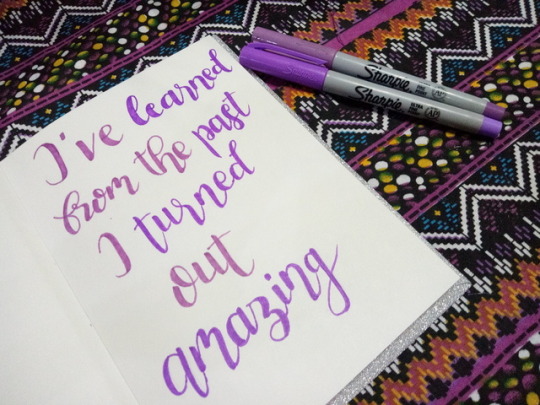 I've learned
from the past
I turned
out
amazing
Sharpie
Sharpie